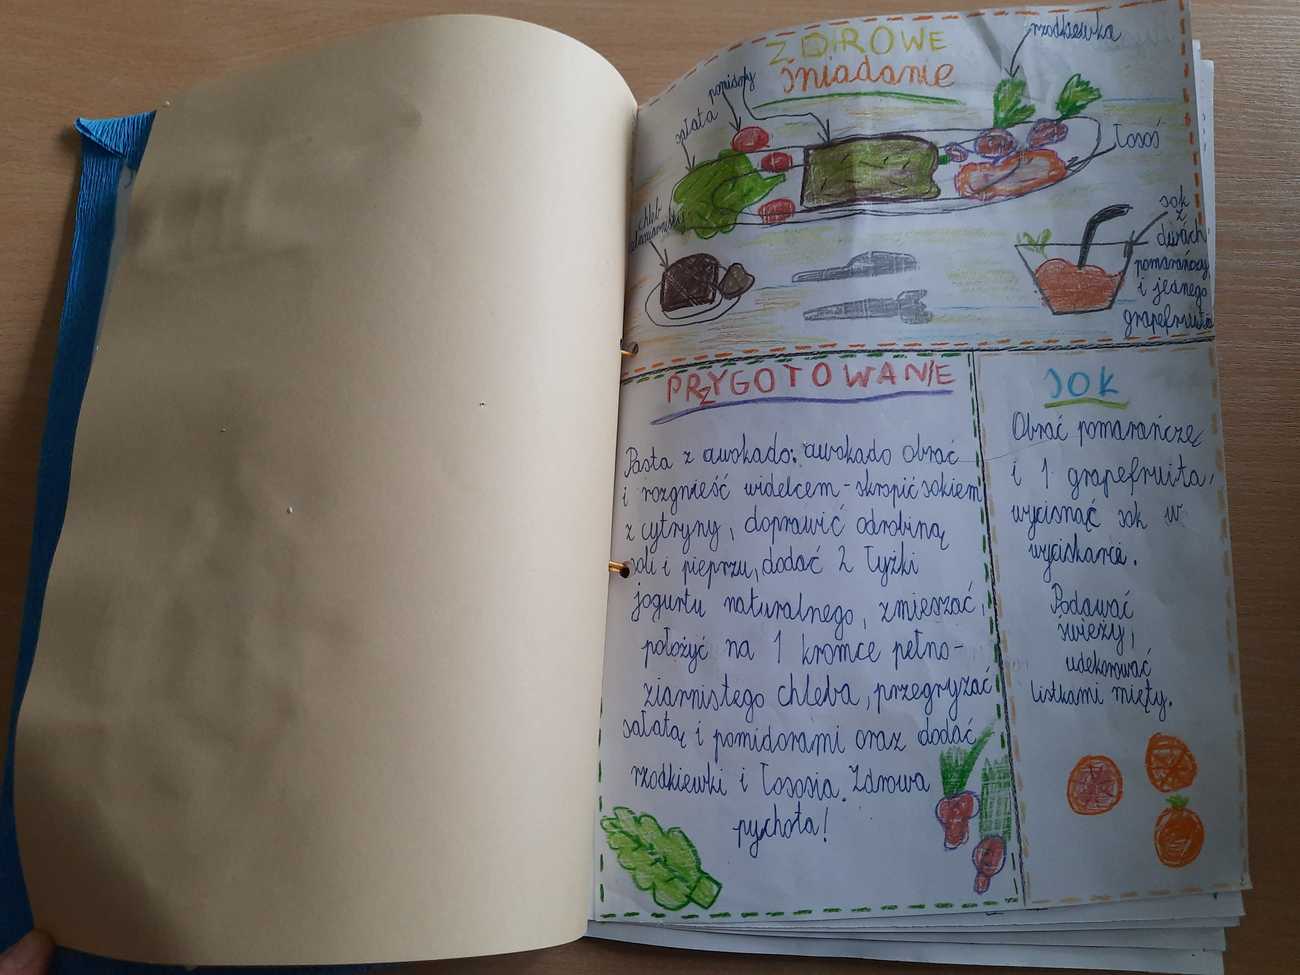 ZDROWE
śniadanie
rzodkiewka
pomidory
sałata
łosoś
chleb
sok
z
dwóch
pomarańczy
i jednego
grapefruita
PRZYGOTOWANIE
Pasta z awokado: awokado obrać
i rozgnieść widelcem - skropić sokiem
z cytryny, doprawić odrobiną
soli i pieprzu, dodać 2 łyżki
jogurtu naturalnego, zmieszać,
położyć na 1 kromce pełno-
ziarnistego chleba, przegryzać
sałatą i pomidorami oraz dodać
rzodkiewki i łososia. Zdrowa
pychota!
SOK
Obrać pomarańczę
i 1 grapefruita,
wycisnąć sok w
wyciskarce.
Podawać
świeży,
udekorować
listkami mięty.